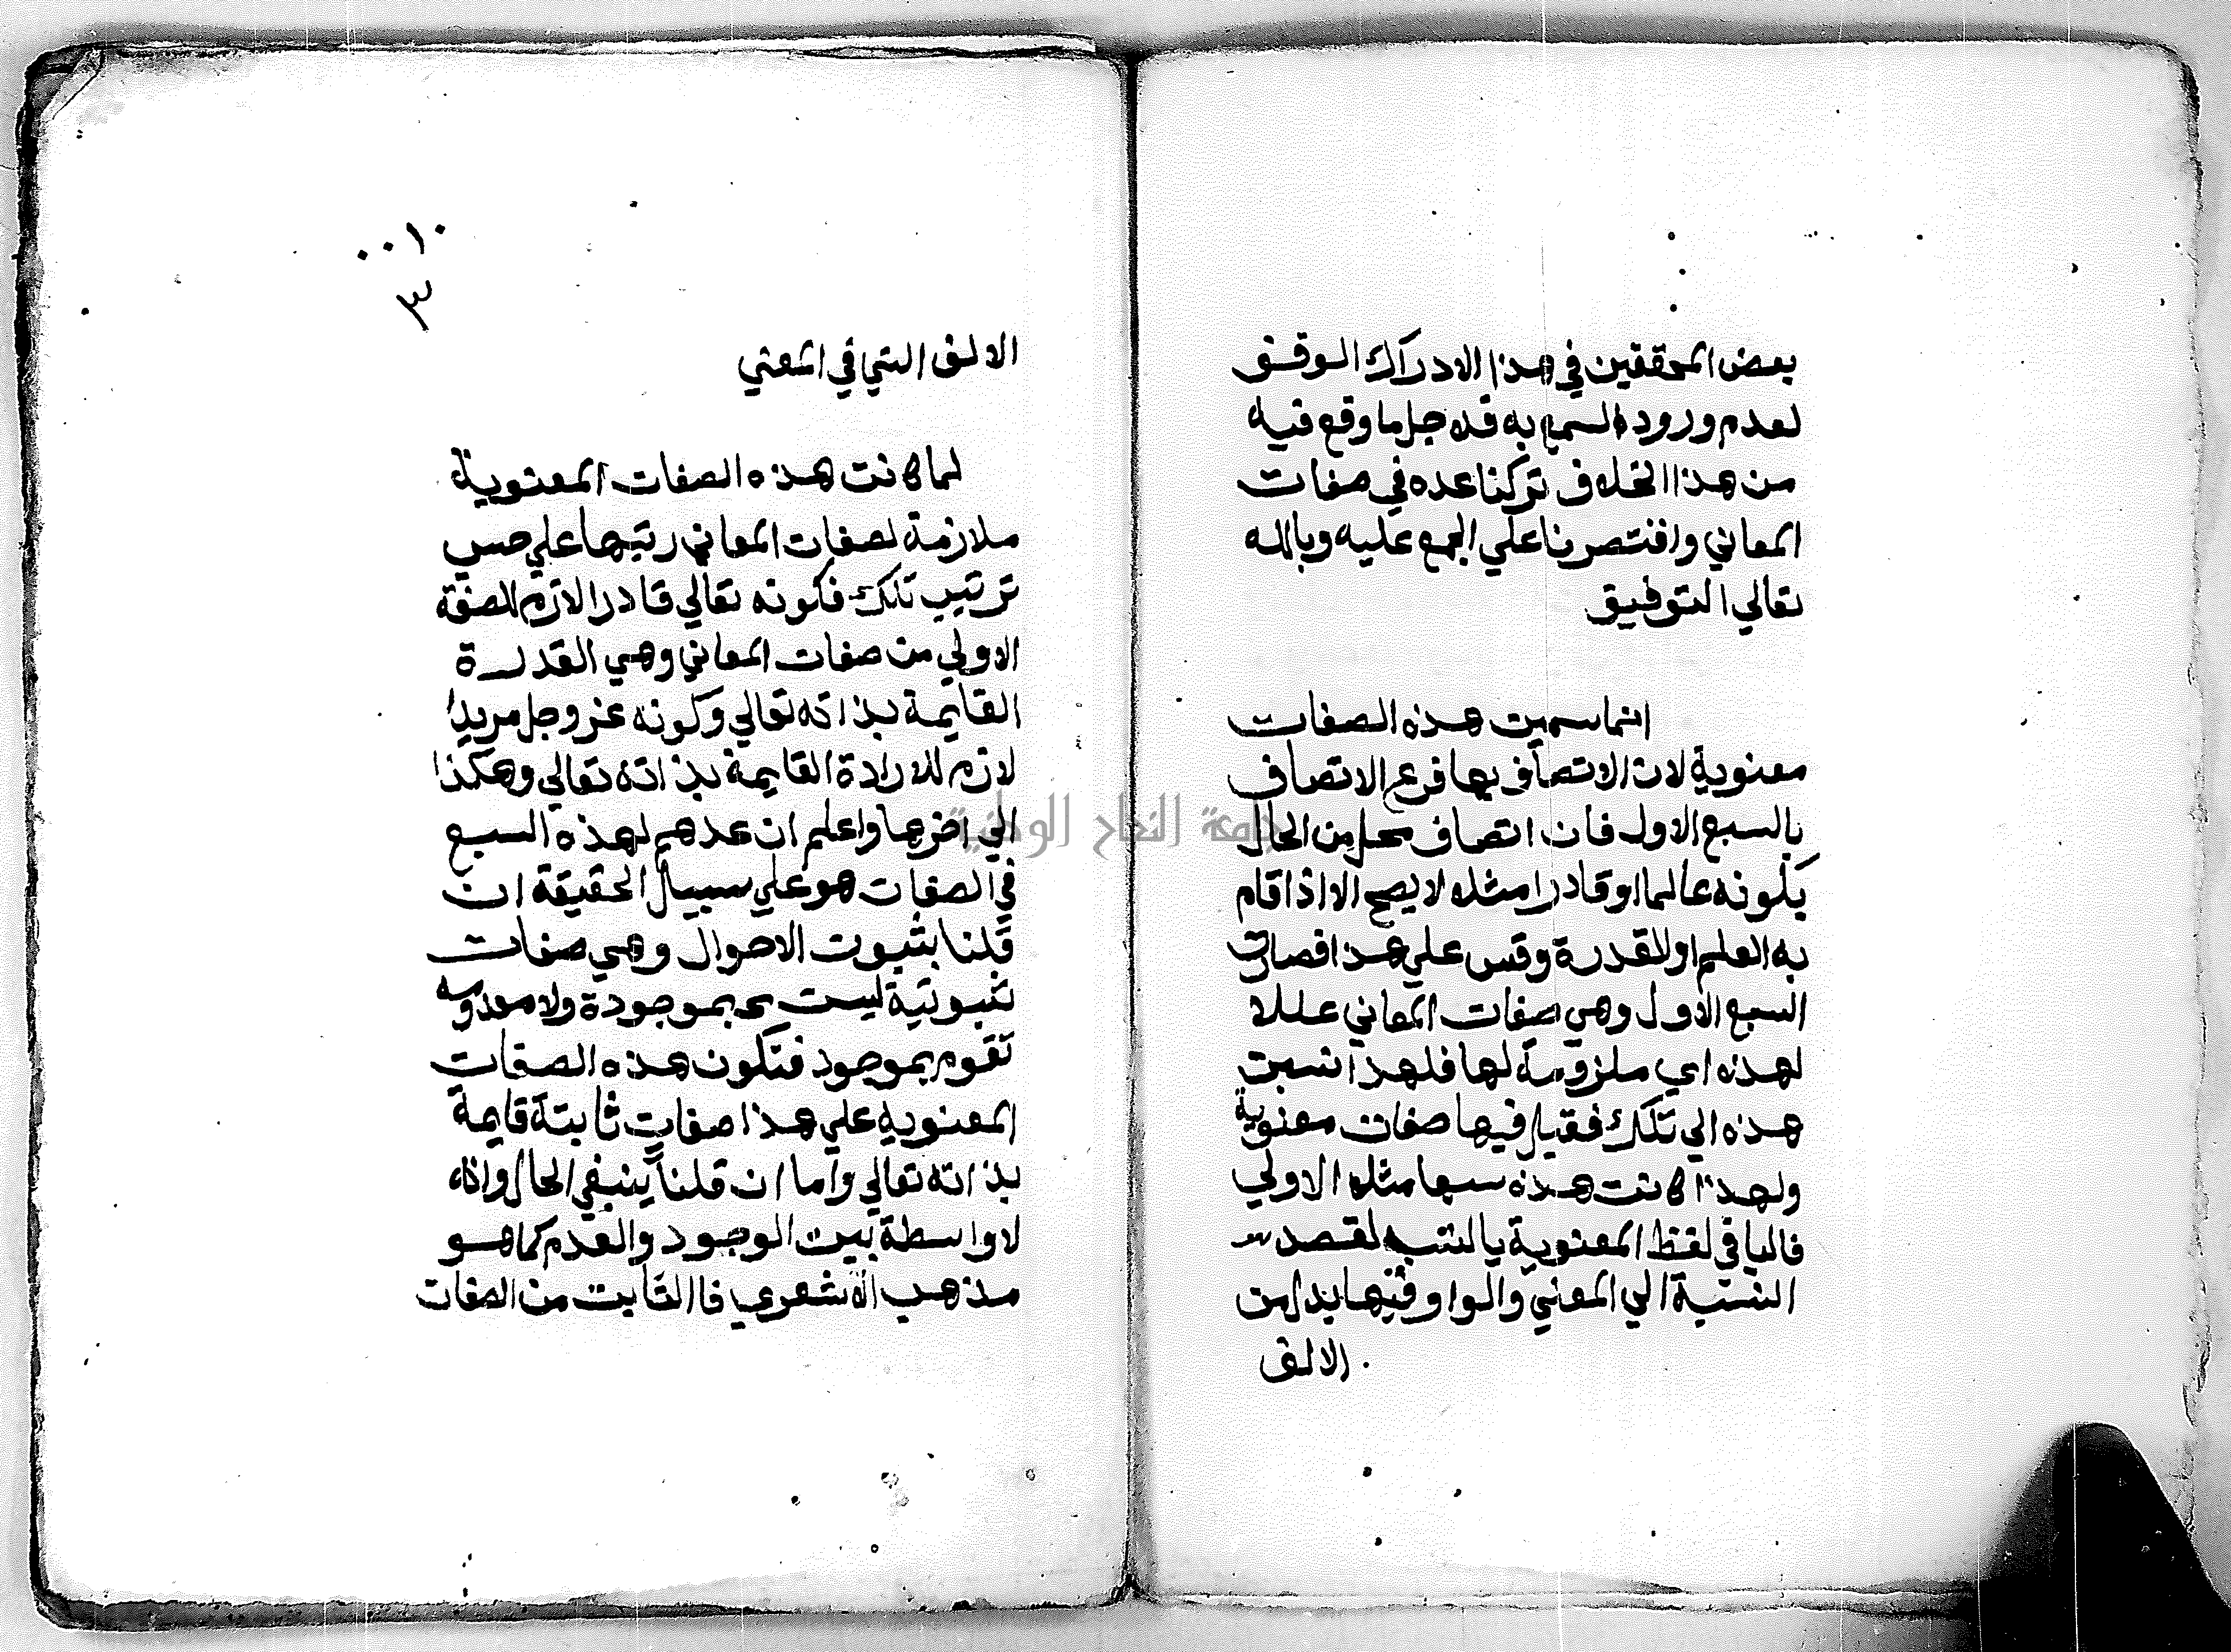 بعض المحققين في هذا الادراك الوقف
لعدم ورود السمع به فلاجل ما وقع فيه
من هذا الخلاف تركنا عده في صفات
المعاني واقتصرنا علي المجمع عليه وبالله
تعالي التوفيق
انما سميت هذه الصفات
معنوية لان الاتصاف بها فرع الاتصاف
بالسبع الاول فان اتصاف محل من الحال
بكونه عالما او قادرا مثلا لا يصح الا اذا قام
به العلم او القدرة وقس علي هذا فصارت
السبع الاول وهي صفات المعاني عللا
لهذه اي ملزومة لها فلهذا نسبت
هذه الي تلك فقيل فيها صفات معنوية
ولهذا كانت هذه سبعا مثل الاولي
فاليا في لفظ المعنوية يا النسب لقصد
النسبة الي المعني والواو فيها بدل من
الالف
٠٠١٠
٣
الالف التي في المعني
لما كانت هذه الصفات المعنوية
ملازمة لصفات المعاني رتبها علي حسب
ترتيب تلك فكونه تعالي قادرا لازم للصفة
الاولي من صفات المعاني وهي القدرة
القايمة بذاته تعالي وكونه عز وجل مريدا
لازم للارادة القايمة بذاته تعالي وهكذا
الي اخرها واعلم ان عدهم لهذه السبع
في الصفات هو علي سبيل الحقيقة ان
قلنا بثبوت الاحوال وهي صفات
ثبوتية ليست بموجودة ولا معدومه
تقوم بموجود فتكون هذه الصفات
المعنوية علي هذا صفات ثابتة قايمة
بذاته تعالي واما ان قلنا بنفي الحال وانه
لا واسطة بين الوجود والعدم كما هو
مذهب الاشعري فاالثابت من الصفات
جامعة النجاح الوطنية